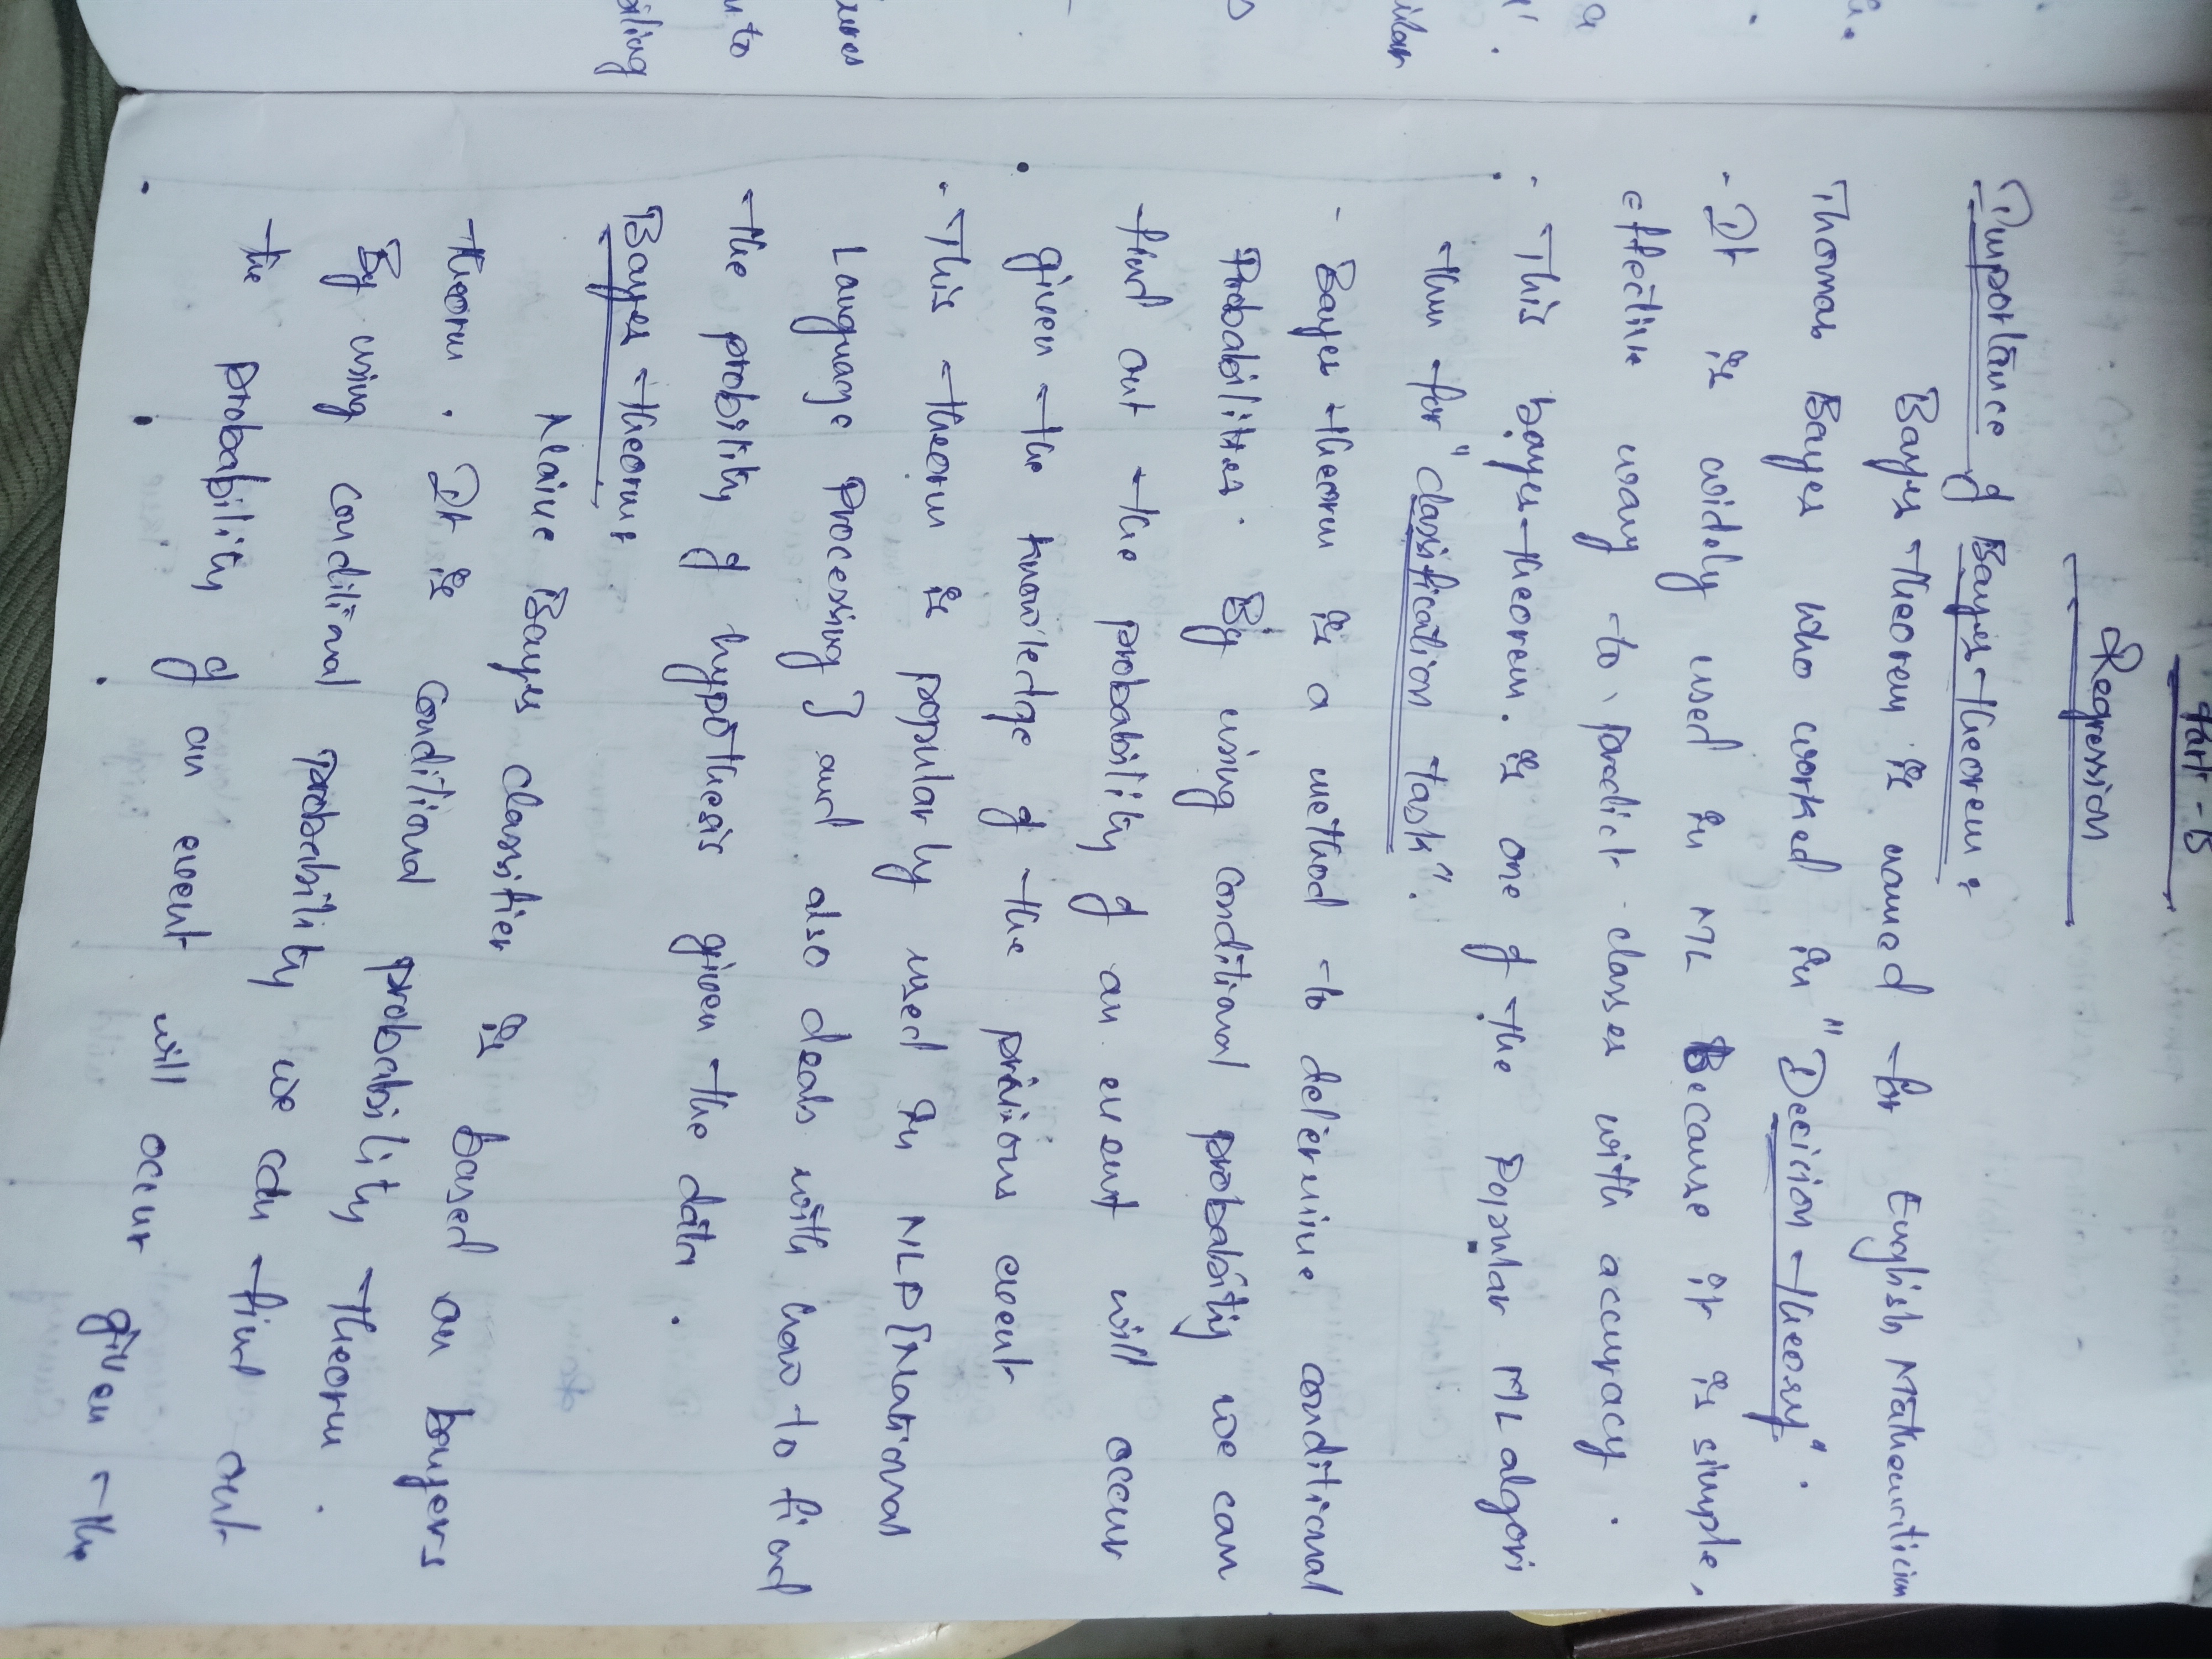 Part-B
Regression
Importance of Bayes theorem :
Bayes theorem is named for English Mathematician
Thomas Bayes who worked in "Decision theory".
- It is widely used in ML Because it is simple,
effective way to predict classes with accuracy.
. This bayes theorem is one of the Popular ML algori
thm for "classification task".
- Bayes theorem is a method to determine conditional
Probabilities. By using conditional probability we can
find out the probability of an event will occur
given the knowledge of the previous event
. This theorm is popularly used in NLP [National
Language Processing] and also deals with how to find
the probility of hypothesis given the data.
Bayes theorm :
Naive Bayes classifier is based on bayers
theorm. It is conditional probability theorm.
By using conditional probability we can find out
the probability of an event will occur given the
ures
u to
iling
ilar
a